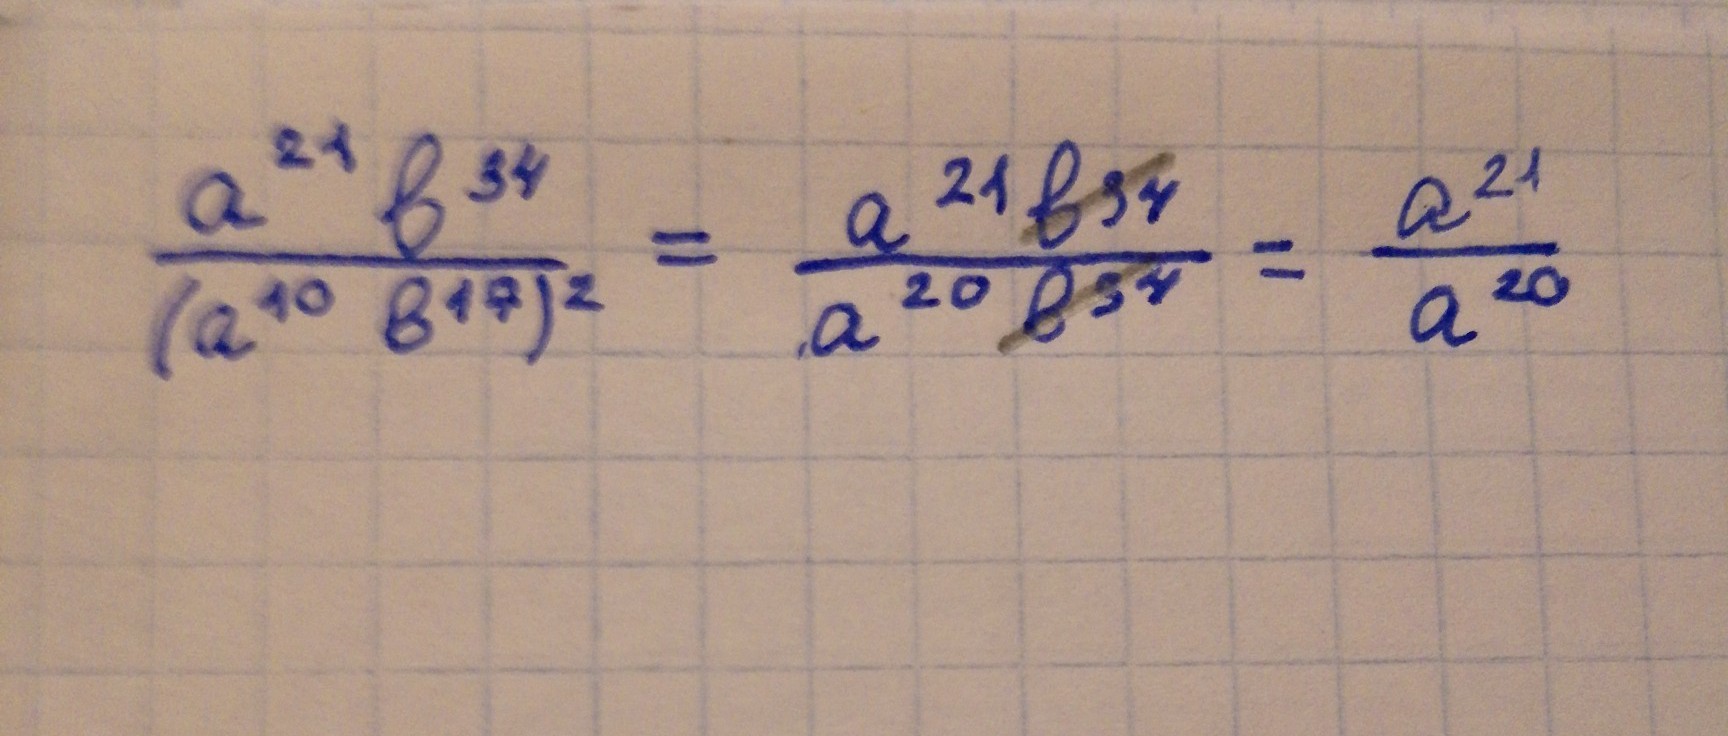 a²¹ b³⁴ / (a¹⁰ b¹⁷)² = a²¹ b³⁴ / a²⁰ b³⁴ = a²¹ / a²⁰